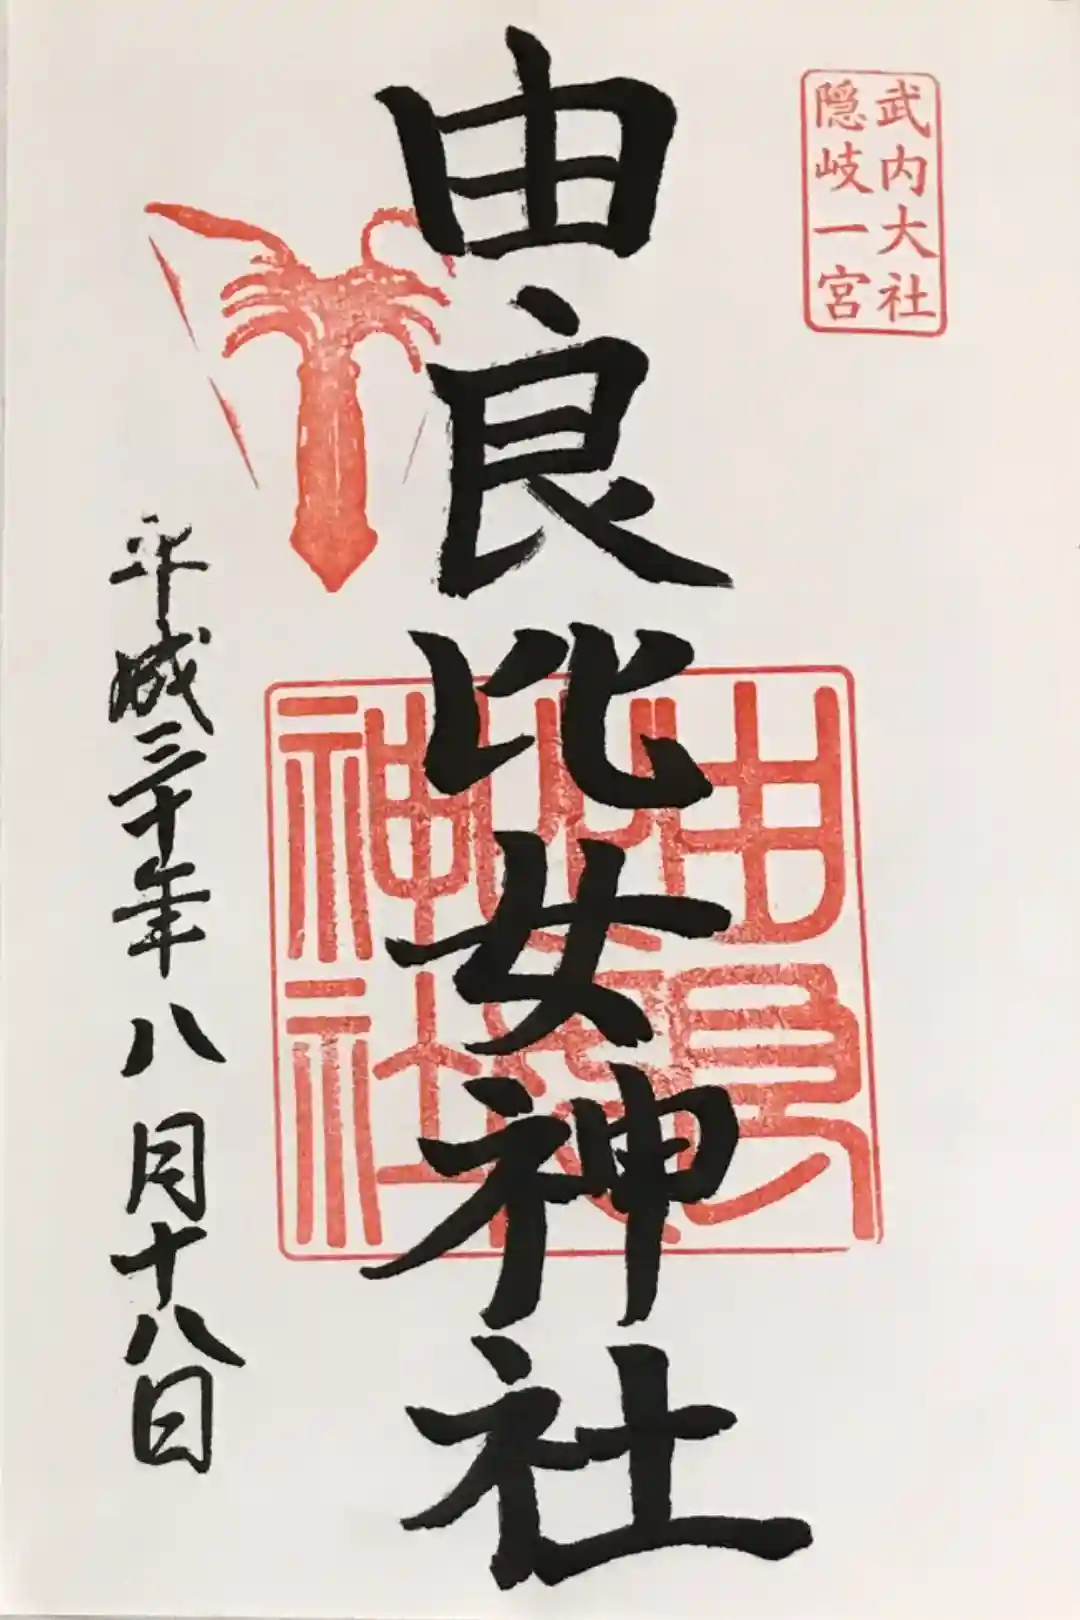 武内大社
隠岐一宮
由良比女神社
由良
比女
神社
平成三十年八月十八日